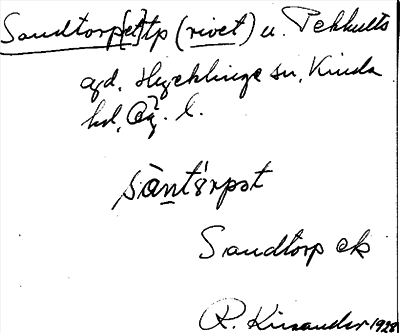 Sandtorp[et] tp (rivet) u. Pekhults
egd. Hycklinge sn, Kinda
hd, Ög. l.
sàntårpət
Sandtorp ek
R. Kinander 1928